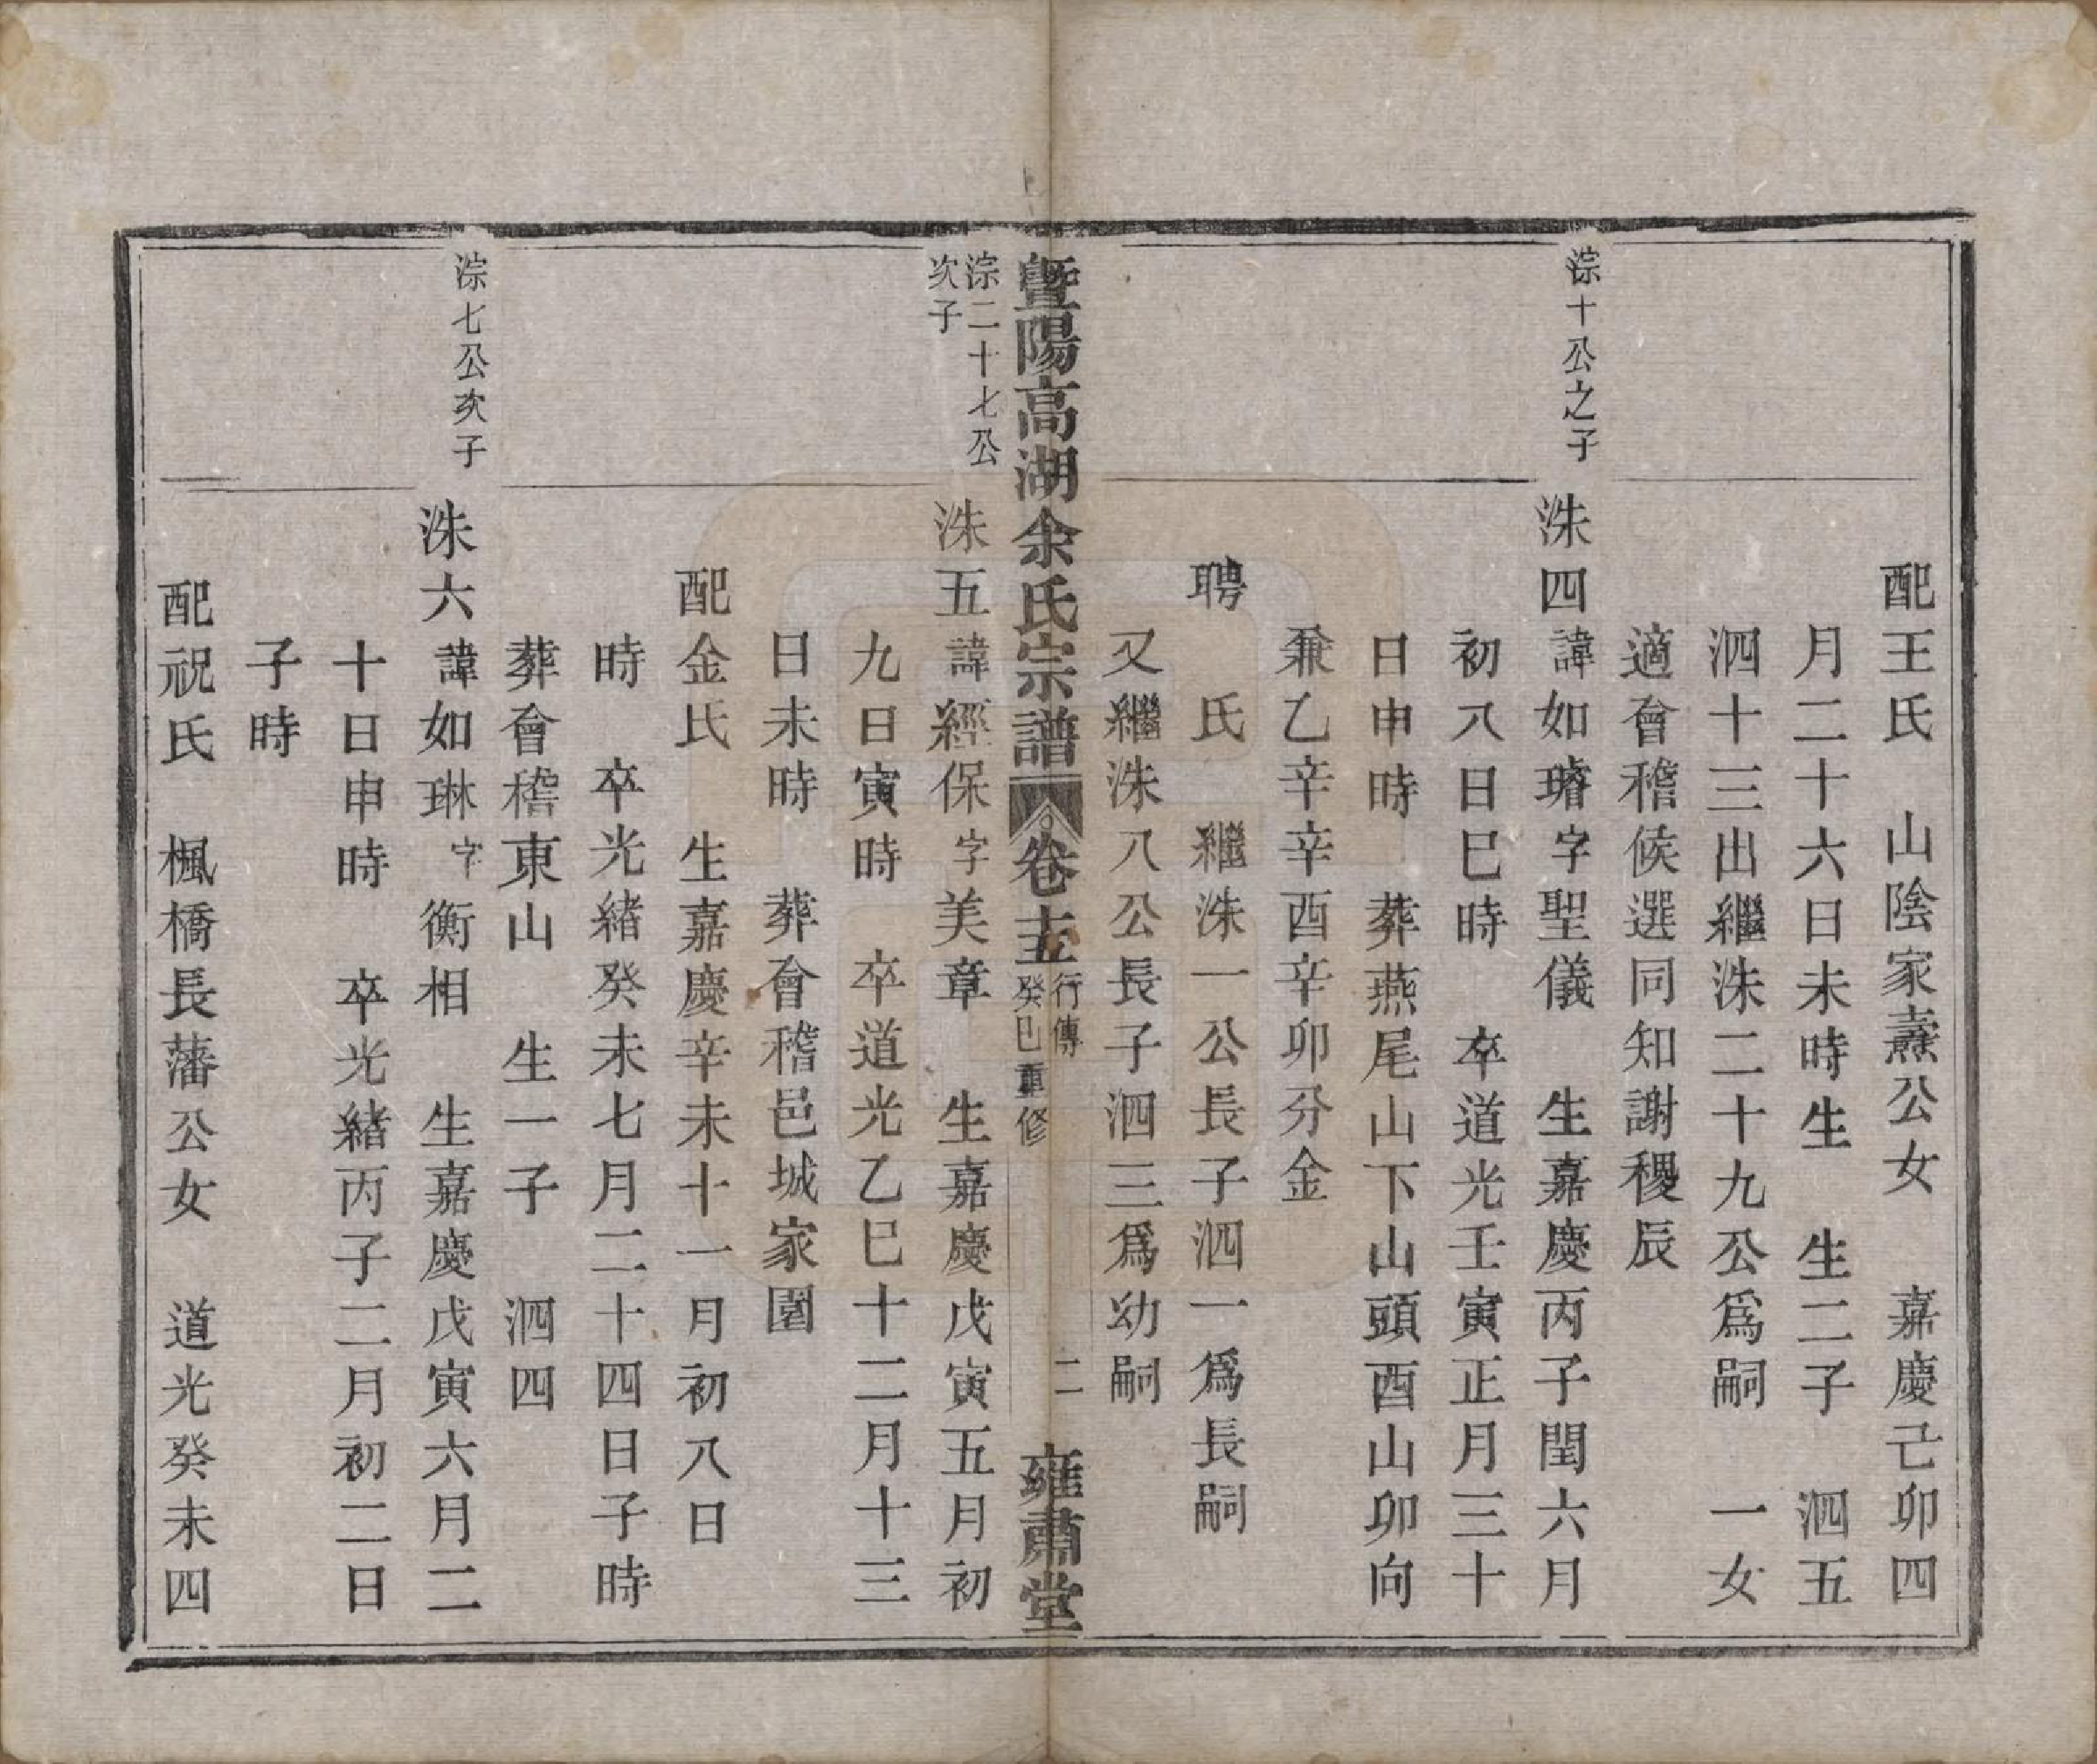 配王氏　山陰家燾公女　嘉慶己卯四
月二十六日未時生　生二子　泗五
泗十三出繼洙二十九公爲嗣　一女
適會稽候選同知謝稷辰
淙十公之子
洙四諱如璿字聖儀　生嘉慶丙子閏六月
初八日巳時　卒道光壬寅正月三十
日申時　葬燕尾山下山頭酉山卯向
兼乙辛辛酉辛卯分金
聘　氏　繼洙一公長子泗一爲長嗣
又繼洙八公長子泗三爲幼嗣
暨陽高湖余氏宗譜　卷十五　行傳　癸巳重修　二　雍肅堂
淙二十七公
次子
洙五諱經保字美章　生嘉慶戊寅五月初
九日寅時　卒道光乙巳十二月十三
日未時　葬會稽邑城家園
配金氏　生嘉慶辛未十一月初八日
時　卒光緒癸未七月二十四日子時
葬會稽東山　生一子　泗四
淙七公次子
洙六諱如琳字衡相　生嘉慶戊寅六月二
十日申時　卒光緒丙子二月初二日
子時
配祝氏　楓橋長藩公女　道光癸未四